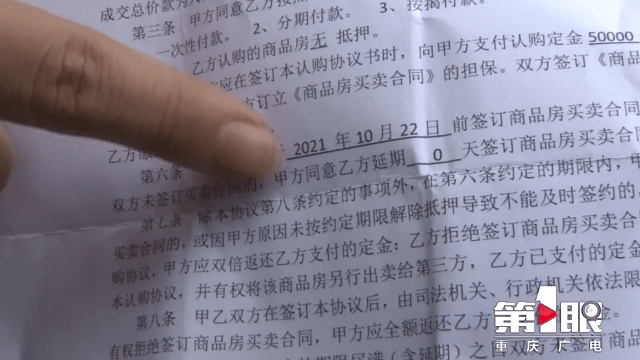 成交总价款为人
第三条 甲方同意乙方按照
一次性付款。 2、分期付款。 3、按揭付款。
乙方认购的商品房无 抵押。
方应在签订本认购协议书时，向甲方支付认购定金 50000
方订立《商品房买卖合同》的担保。双方签订《商品
乙方 2021 年 10 月 22 日 前签订商品房买卖合同
第六条 甲方同意乙方延期 0 天签订商品房买卖
双方未签订买卖合同的，
第七条 除本协议第八条约定的事项外，在第六条约定的期限内，甲
买卖合同的，或因甲方原因未按约定期限解除抵押导致不能及时签约的
购协议，甲方应双倍返还乙方支付的定金；乙方拒绝签订商品房买卖合
本认购协议，并有权将该商品房另行出卖给第三方，乙方已支付的定金
第八条 甲乙双方在签订本协议后，由司法机关、行政机关依法限
有权拒绝签订商品房买卖合同，甲方应全额返还乙方
期限届满（含延期）之日双方未签
第1眼
重庆广电